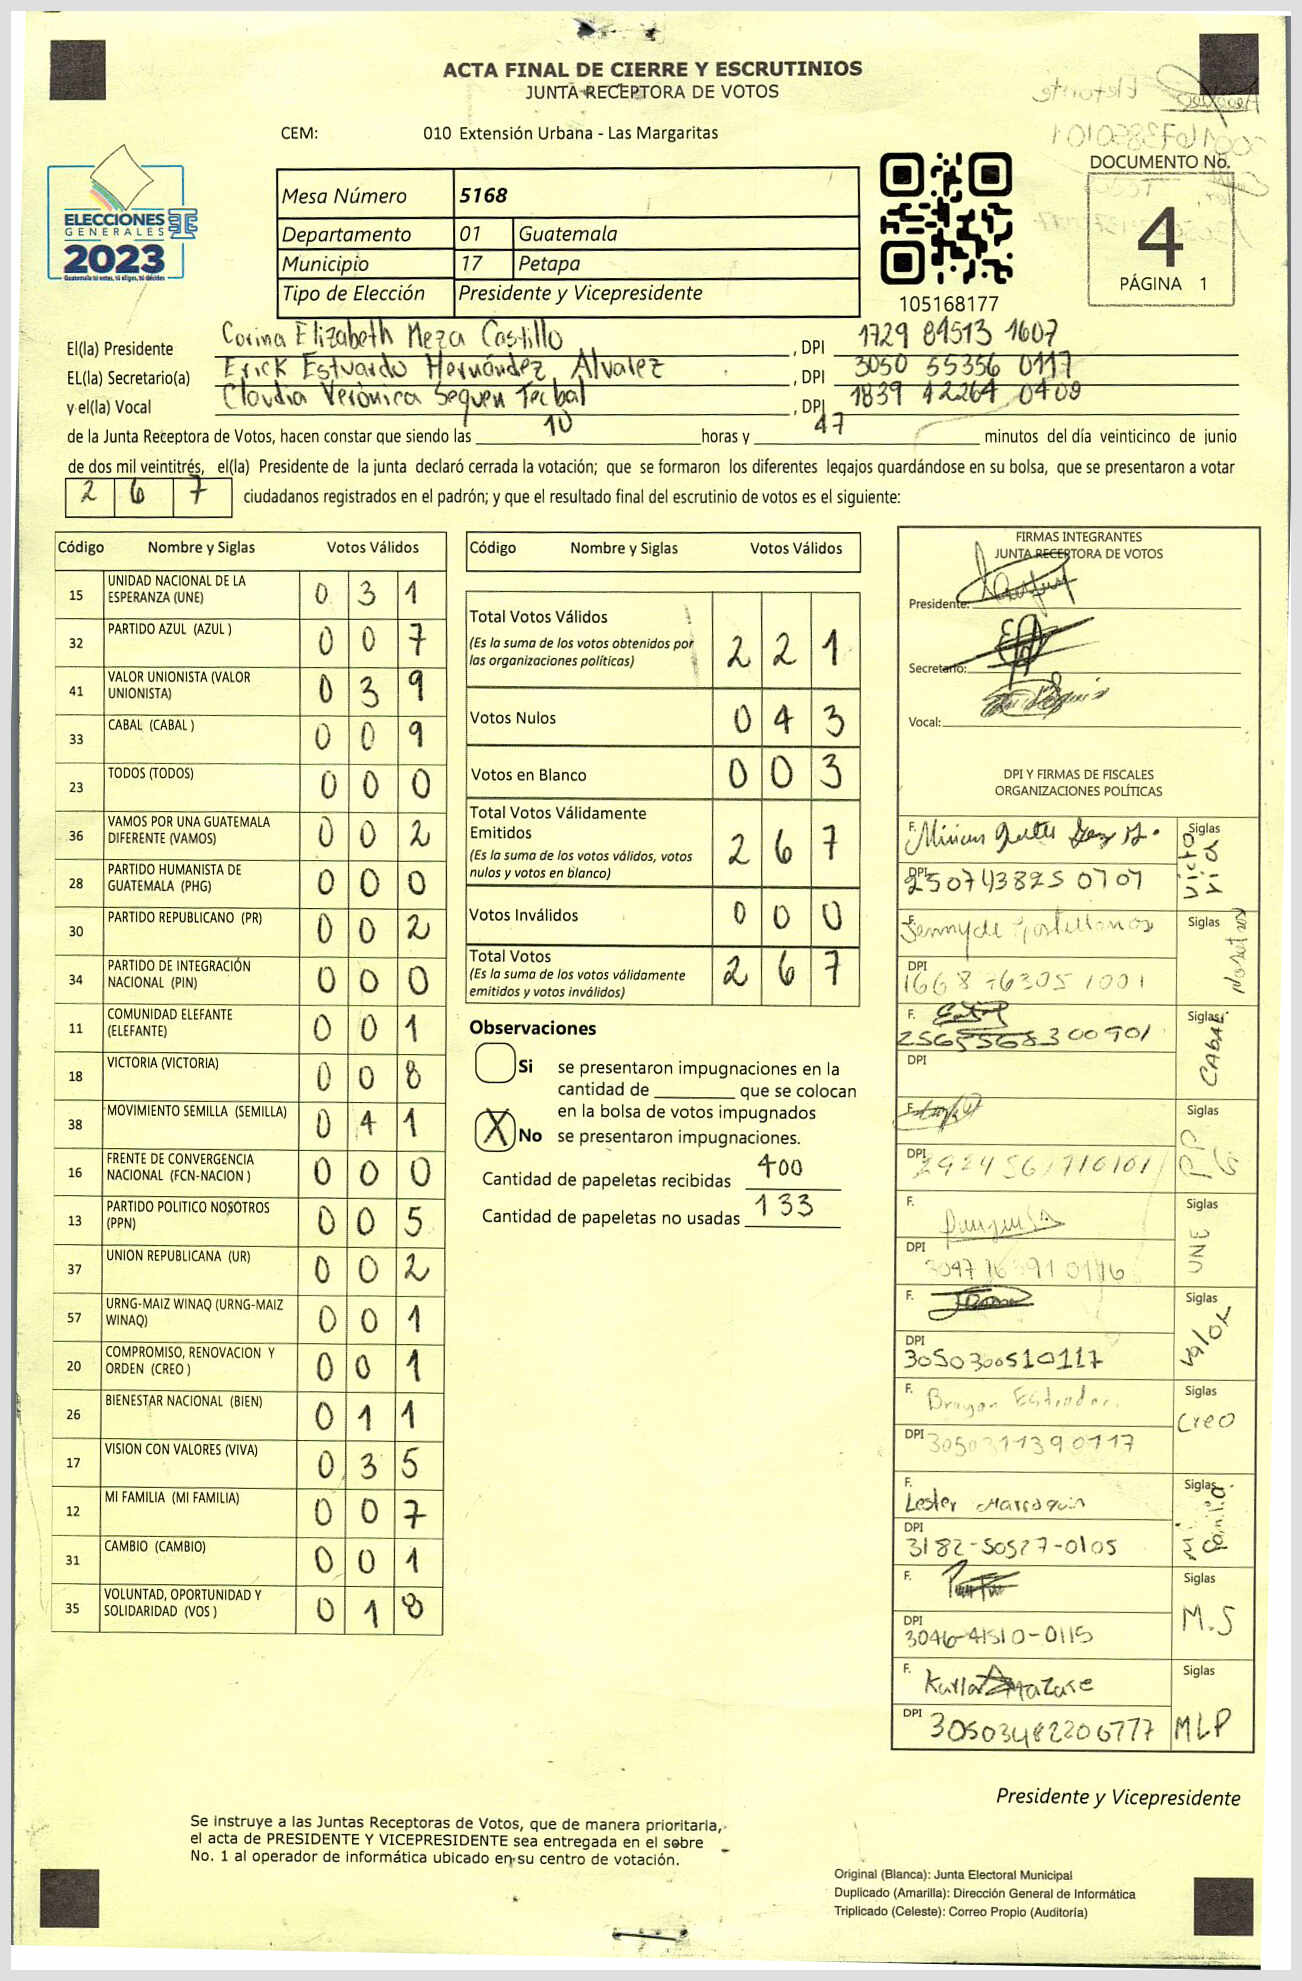 ACTA FINAL DE CIERRE Y ESCRUTINIOS
JUNTA RECEPTORA DE VOTOS
CEM: 010 Extensión Urbana - Las Margaritas
DOCUMENTO No.
4
PÁGINA 1
ELECCIONES
GENERALES
2023
Guatemala tú votas, tú eliges, tú decides
Mesa Número 5168
Departamento 01 Guatemala
Municipio 17 Petapa
Tipo de Elección Presidente y Vicepresidente
105168177
El(la) Presidente Corina Elizabeth Meza Castillo, DPI 1729 84513 1607
EL(la) Secretario(a) Erick Estuardo Hernández Alvalez, DPI 3050 55356 0117
y el(la) Vocal Claudia Verónica Sequen Tecbal, DPI 1839 42264 0409
de la Junta Receptora de Votos, hacen constar que siendo las 10 horas y 47 minutos del día veinticinco de junio
de dos mil veintitrés, el(la) Presidente de la junta declaró cerrada la votación; que se formaron los diferentes legajos guardándose en su bolsa, que se presentaron a votar
2 6 7 ciudadanos registrados en el padrón; y que el resultado final del escrutinio de votos es el siguiente:
Código Nombre y Siglas Votos Válidos
15 UNIDAD NACIONAL DE LA ESPERANZA (UNE) 0 3 1
32 PARTIDO AZUL (AZUL ) 0 0 7
41 VALOR UNIONISTA (VALOR UNIONISTA) 0 3 9
33 CABAL (CABAL ) 0 0 9
23 TODOS (TODOS) 0 0 0
36 VAMOS POR UNA GUATEMALA DIFERENTE (VAMOS) 0 0 2
28 PARTIDO HUMANISTA DE GUATEMALA (PHG) 0 0 0
30 PARTIDO REPUBLICANO (PR) 0 0 2
34 PARTIDO DE INTEGRACIÓN NACIONAL (PIN) 0 0 0
11 COMUNIDAD ELEFANTE (ELEFANTE) 0 0 1
18 VICTORIA (VICTORIA) 0 0 8
38 MOVIMIENTO SEMILLA (SEMILLA) 0 4 1
16 FRENTE DE CONVERGENCIA NACIONAL (FCN-NACION ) 0 0 0
13 PARTIDO POLITICO NOSOTROS (PPN) 0 0 5
37 UNION REPUBLICANA (UR) 0 0 2
57 URNG-MAIZ WINAQ (URNG-MAIZ WINAQ) 0 0 1
20 COMPROMISO, RENOVACION Y ORDEN (CREO ) 0 0 1
26 BIENESTAR NACIONAL (BIEN) 0 1 1
17 VISION CON VALORES (VIVA) 0 3 5
12 MI FAMILIA (MI FAMILIA) 0 0 7
31 CAMBIO (CAMBIO) 0 0 1
35 VOLUNTAD, OPORTUNIDAD Y SOLIDARIDAD (VOS ) 0 1 8
Código Nombre y Siglas Votos Válidos
Total Votos Válidos
(Es la suma de los votos obtenidos por
las organizaciones políticas) 2 2 1
Votos Nulos 0 4 3
Votos en Blanco 0 0 3
Total Votos Válidamente
Emitidos
(Es la suma de los votos válidos, votos
nulos y votos en blanco) 2 6 7
Votos Inválidos 0 0 0
Total Votos
(Es la suma de los votos válidamente
emitidos y votos inválidos) 2 6 7
Observaciones
Si se presentaron impugnaciones en la
cantidad de ________ que se colocan
en la bolsa de votos impugnados
X No se presentaron impugnaciones.
Cantidad de papeletas recibidas 400
Cantidad de papeletas no usadas 133
FIRMAS INTEGRANTES
JUNTA RECEPTORA DE VOTOS
Presidente:
Secretario:
Vocal:
DPI Y FIRMAS DE FISCALES
ORGANIZACIONES POLÍTICAS
F. Siglas Victoria
DPI 250743825 0701
F. Siglas Nosotros
DPI 1668 76305 1001
F. Siglas: CABAL
25655568300901
DPI
F. Siglas
DPI 2924561710101
F. Siglas UNE
DPI
F. Siglas Valor
DPI 3050300510117
F. Brayan Estrada Siglas Creo
DPI 3050311390117
F. Lester Marroquin Siglas Mi Familia
DPI 3182-50527-0105
F. Siglas M.S
DPI 3046-41510-0115
F. Karla Siglas MLP
DPI 30503482206777
Presidente y Vicepresidente
Se instruye a las Juntas Receptoras de Votos, que de manera prioritaria,
el acta de PRESIDENTE Y VICEPRESIDENTE sea entregada en el sobre
No. 1 al operador de informática ubicado en su centro de votación.
Original (Blanca): Junta Electoral Municipal
Duplicado (Amarilla): Dirección General de Informática
Triplicado (Celeste): Correo Propio (Auditoría)